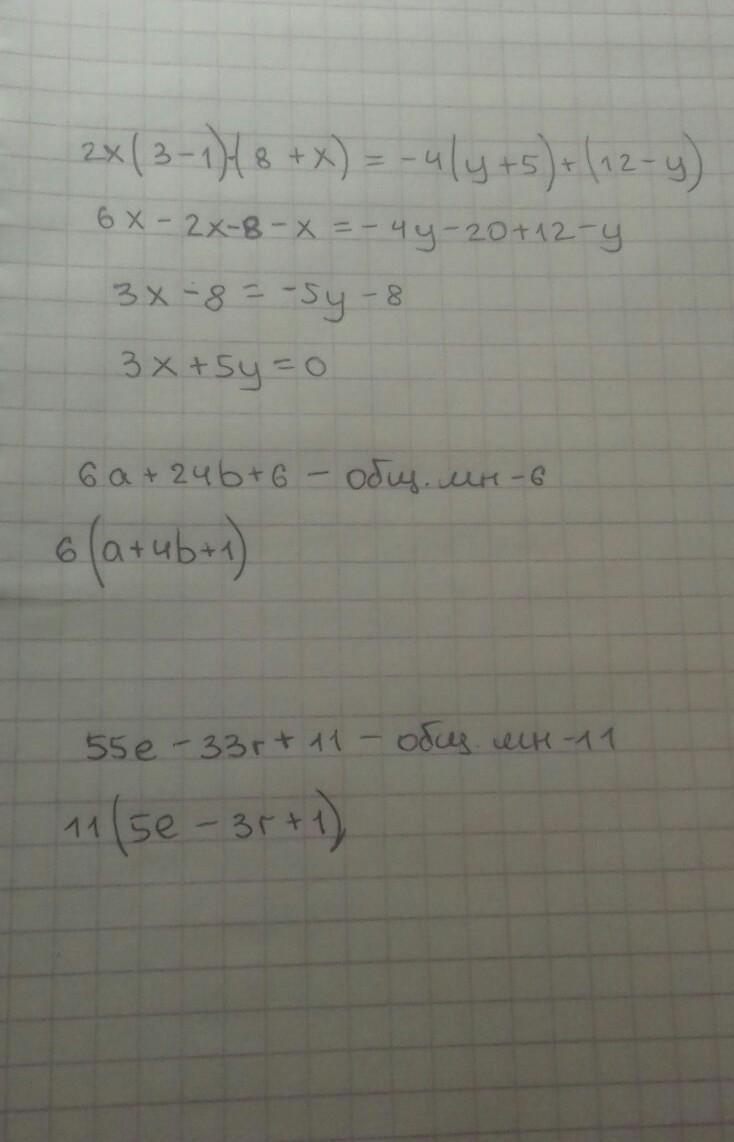 2x(3-1)-(8+x)=-4(y+5)+(12-y)
6x-2x-8-x=-4y-20+12-y
3x-8=-5y-8
3x+5y=0
6a+24b+6 - общ. мн - 6
6(a+4b+1)
55e-33r+11 - общ. мн - 11
11(5e-3r+1)